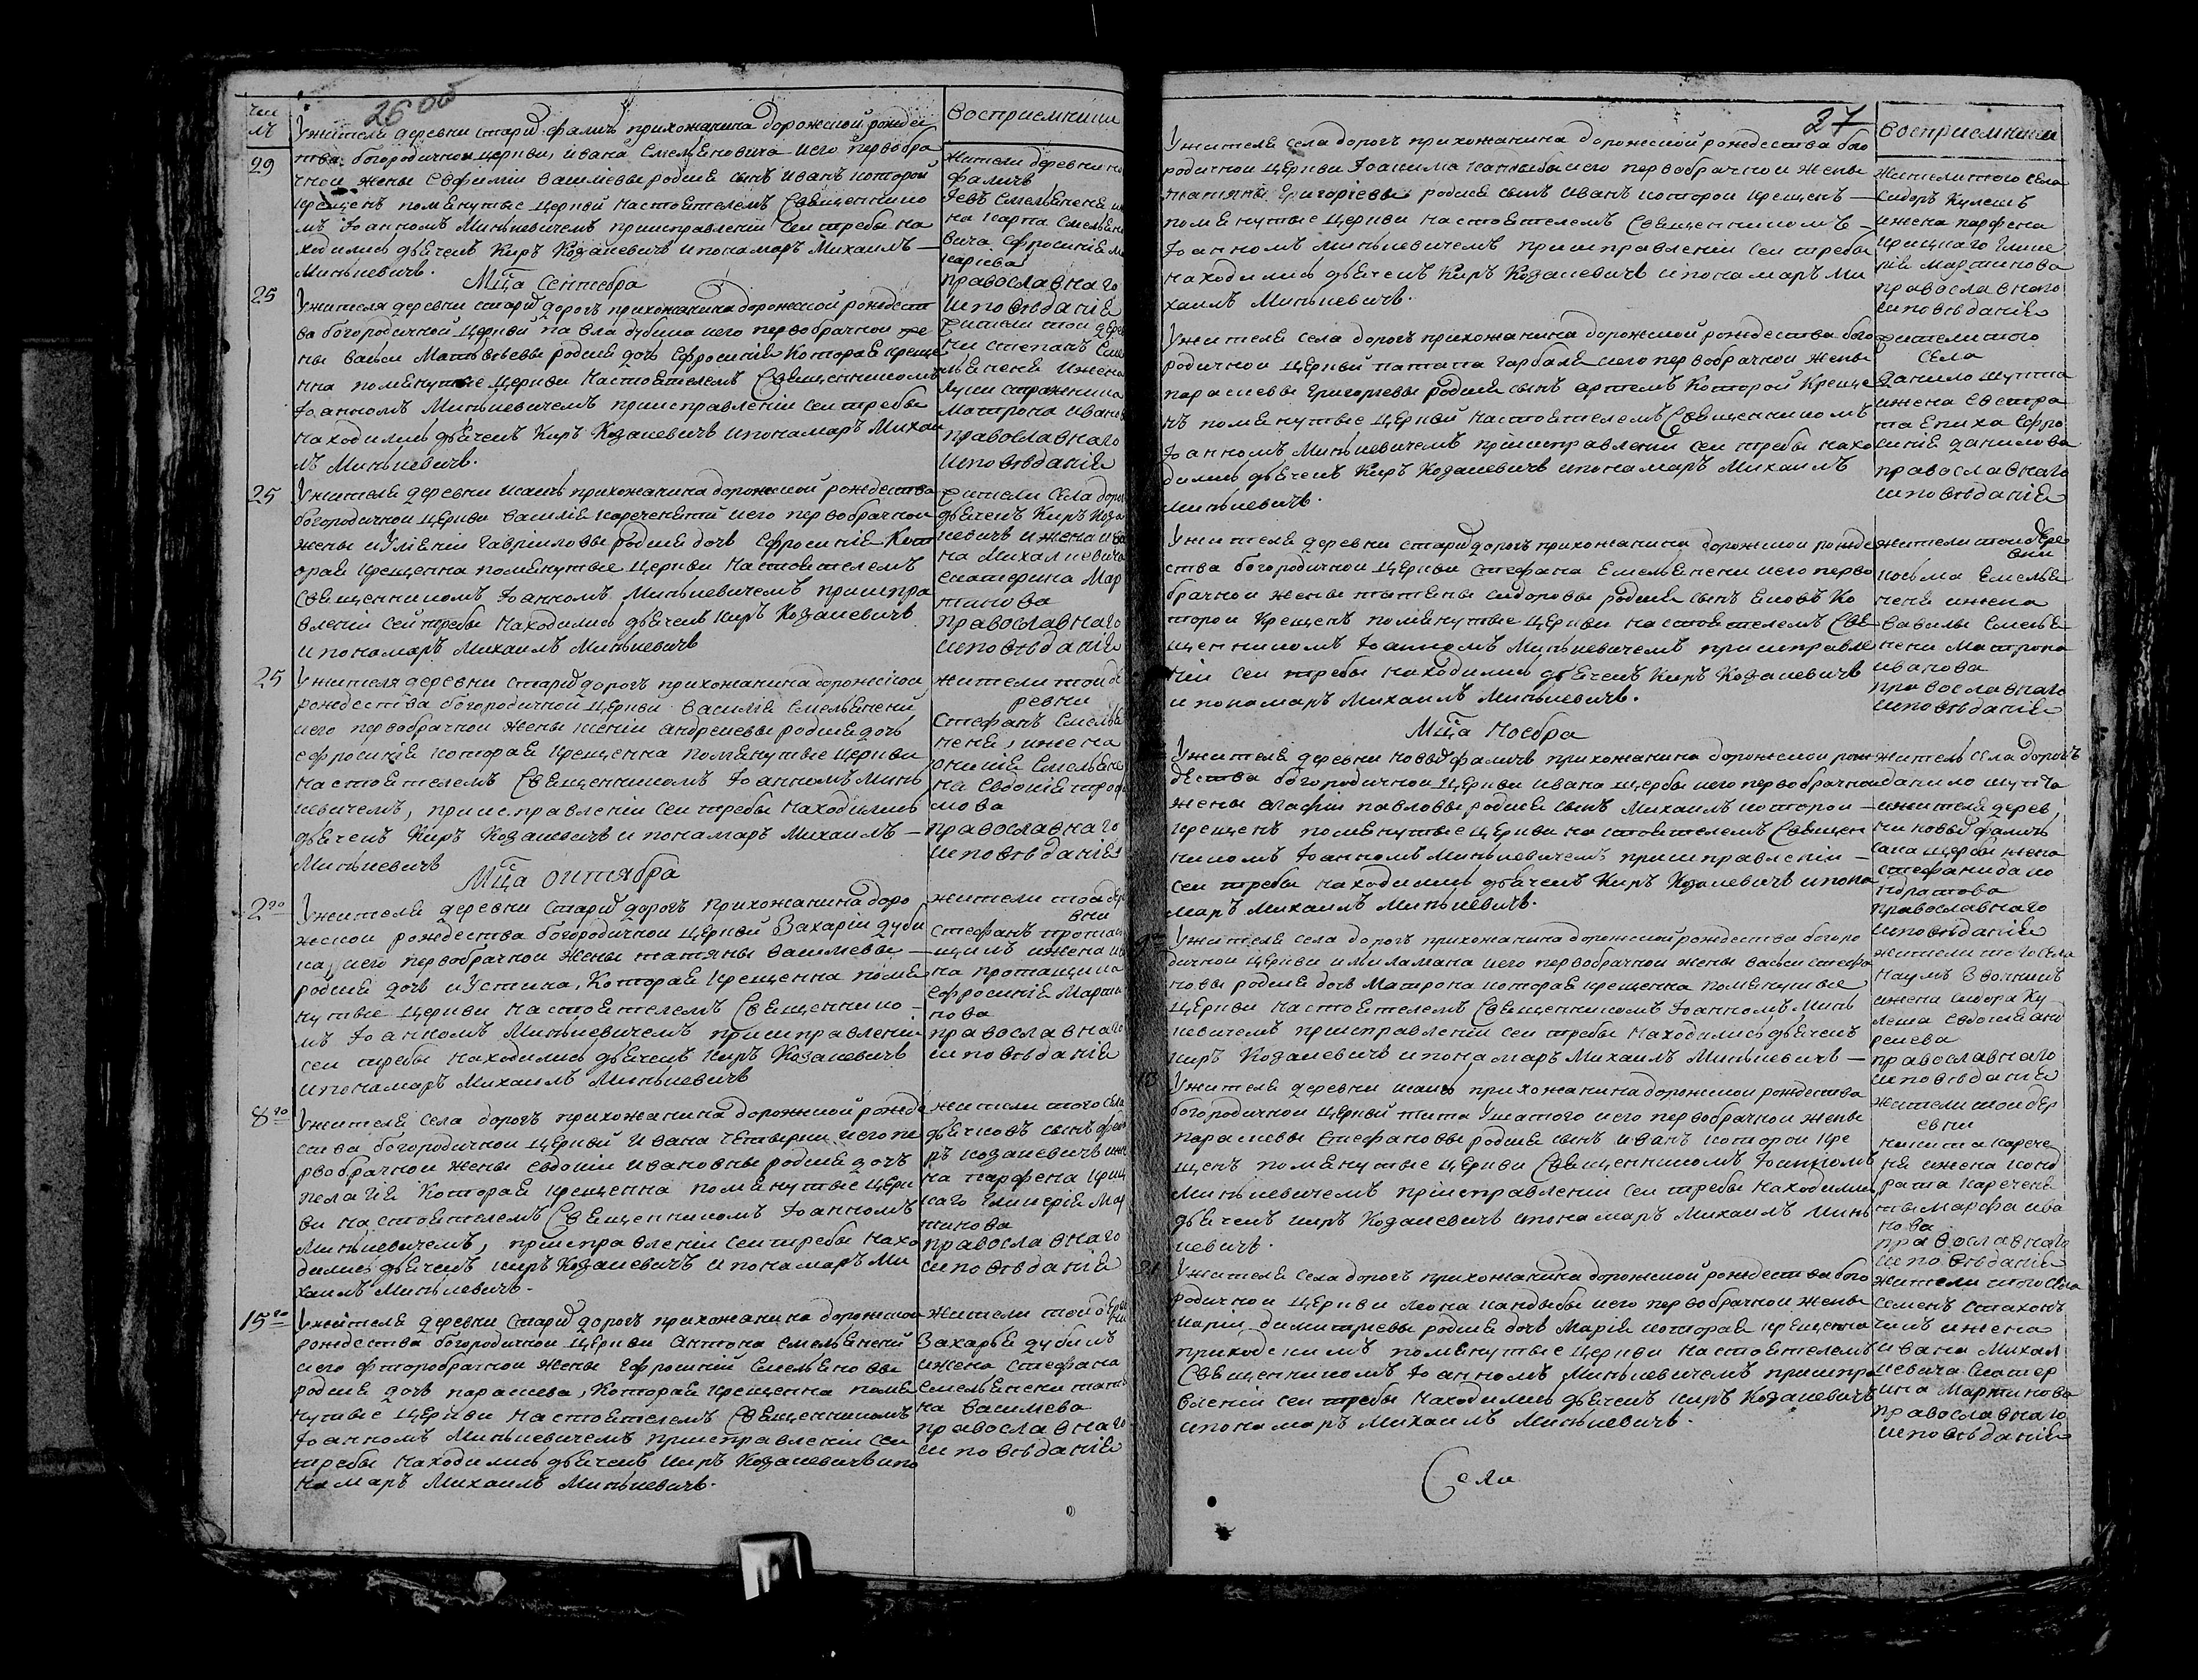 чис
лъ
26 об
Восприемники
29
У жителя деревни старів фаличъ прихожанина дорожской рождес
тва богородичной церкви, ивана Емельяновича и его первобра
чной жены Евфиміи васильевы родися сынъ иванъ которой
крещенъ помянутыя церкви настоятелемъ священнико
мъ Іоанномъ Минькевичемъ при исправленіи сей требы на
ходились дьячекъ Киръ Козакевичъ и пономаръ Михаилъ
Минькевичъ.
жители деревни
фаличъ
карпа
Ефросинія
православнаго
исповѣданія
Мца Сентебра
25
У жителя деревни старів дорогъ прихожанина дорожской рождест
ва богородичной церкви павла дубика и его первобрачной же
ны васьи Матвѣевы родися дочъ Ефросинія которая креще
нна помянутые церкви настоятелемъ священникомъ
Іоанномъ Минькевичемъ при исправленіи сей требы
находились дьячекъ Киръ Козакевичъ и пономаръ Михаи
лъ Минькевичъ.
жители той дере
вни степанъ Еме
льяненя и жена
Матрона иванова
православнаго
исповѣданія
25
У жителя деревни исаи прихожанина дорожской рождества
богородичной церкви василія кареченяти и его первобрачной
жены иУліяніи гавриловы родися дочъ Ефросинія Кот
орая крещенна помянутые церкви настоятелемъ
священникомъ Іоанномъ Минькевичемъ при испра
вленіи сей требы находились дьячекъ Киръ Козакевичъ
и пономаръ Михаилъ Минькевичъ
жители села дорогъ
дьячекъ Киръ Коза
кевичъ и жена ива
на Михалкевича
екатерина Мар
тинова
православнаго
исповѣданія
25
У жителя деревни старів дорогъ прихожанина дорожской
рождества богородичной церкви василія Емельянени
и его первобрачной жены ксеніи андреевы родися дочъ
ефросинія которая крещенна помянутые церкви
настоятелемъ священникомъ Іоанномъ Минь
кевичемъ, при исправленіи сей требы находились
дьячекъ Киръ Козакевичъ и пономаръ Михаилъ
Минькевичъ
жители той де
ревни
Стефанъ Емелья
неня, и жена
Емельяне
на Евдокія троф
имова
православнаго
исповѣданія
Мца октября
2го
У жителя деревни старів дорогъ прихожанина доро
жской рождества богородичной церкви Захаріи дуби
ка, и его первобрачной жены татяны васильевы
родися дочъ иУстина, которая крещенна помя
нутые церкви настоятелемъ священнико
мъ Іоанномъ Минькевичемъ при исправленіи
сей требы находились дьячекъ Киръ Козакевичъ
и пономаръ Михаилъ Минькевичъ
жители той дере
вни
стефанъ протащи
щикъ и жена ива
на протащика
Ефросинія Марти
нова
православнаго
исповѣданія
8го
У жителя села дорогъ прихожанина дорожской рожде
ства богородичной церкви ивана Четверти, и его пе
рвобрачной жены евдокіи ивановны родися дочъ
пелагія Которая крещенна помянутые церк
ви настоятелемъ священникомъ Іоанномъ
Минькевичемъ, при исправленіи сей требы нахо
дились дьячекъ Киръ Козакевичъ и пономаръ Ми
хаилъ Минькевичъ.
жители того села
дьячковъ сынъ федо
ръ козакевичъ и же
на парфена криц
каго гликерія Мар
тинова
православнаго
исповѣданія
15го
У жителя деревни старів дорогъ прихожанина дорожской
рождества богородичной церкви Антона емельянени
и его фторобрачной жены Ефросиніи Емельяновы
родися дочъ парасцева, Которая крещенна помя
нутые церкви настоятелемъ священникомъ
Іоанномъ Минькевичемъ при исправленіи сей
требы находились дьячекъ Киръ Козакевичъ и по
номаръ Михаилъ Минькевичъ.
жители той деревни
Захарья дубикъ
и жена Стефана
Емельянени татя
на васильева
православнаго
исповѣданія
27
восприемники
У жителя села дорогъ прихожанина дорожской рождества бого
родичной церкви Іоакима кандыбы и его первобрачной жены
татяны Григорьевы родися сынъ иванъ которой крещенъ
помянутые церкви настоятелемъ священникомъ
Іоанномъ Минькевичемъ при исправленіи сей требы
находились дьячекъ Киръ Козакевичъ и пономаръ Ми
хаилъ Минькевичъ.
жители того села
сидоръ Кулешъ
и жена парфена
крицкаго глике
рія Мартинова
православнаго
исповѣданія
У жителя села дорогъ прихожанина дорожской рождества бого
родичной церкви патапа гарбаля и его первобрачной жены
парасцевы григорьевы родися сынъ артемъ Которой креще
нъ помянутые церкви настоятелемъ священникомъ
Іоанномъ Минькевичемъ при исправленіи сей требы нахо
дились дьячекъ Киръ Козакевичъ и пономаръ Михаилъ
Минькевичъ.
жители того
села
данило шупта
и жена Евстра
та Ефро
синія данилова
православнаго
исповѣданія
У жителя деревни старів дорогъ прихожанина дорожской рожде
ства богородичной церкви стефана Емельянени и его перво
брачной жены татяны сидоровы родися сынъ яковъ Ко
торой Крещенъ помянутые церкви настоятелемъ свя
щенникомъ Іоанномъ Минькевичемъ при исправле
ніи сей требы находились дьячекъ Киръ Козакевичъ
и пономаръ Михаилъ Минькевичъ.
жители той дере
вни
козьма Емелья
неня и жена
вавилы Емелья
нени Матрона
иванова
православнаго
исповѣданія
Мца Ноебра
У жителя деревни новыхъ фаличъ прихожанина дорожской рож
дества богородичной церкви ивана щербы и его первобрачной
жены агафіи павловы родися сынъ Михаилъ которой
крещенъ помянутые церкви настоятелемъ священ
никомъ Іоанномъ Минькевичемъ при исправленіи
сей требы находились дьячекъ Киръ Козакевичъ и поно
маръ Михаилъ Минькевичъ.
житель села дорогъ
данило шупта
и жителя дерев
ни новыхъ фаличъ
щербы жена
стефанида ко
ндратова
православнаго
исповѣданія
У жителя села дорогъ прихожанина дорожской рождества богоро
дичной церкви и его первобрачной жены васьи стефа
новы родися дочъ Матрона которая крещенна помянутые
церкви настоятелемъ священникомъ Іоанномъ Минь
кевичемъ при исправленіи сей требы находились дьячекъ
Киръ Козакевичъ и пономаръ Михаилъ Минькевичъ
жители того села
наумъ
и жена сидора Ку
леша евдокія анд
реева
православнаго
исповѣданія
У жителя деревни исаи прихожанина дорожской рождества
богородичной церкви тита Ушатого и его первобрачной жены
парасцевы Стефановы родися сынъ иванъ которой кре
щенъ помянутые церкви священникомъ Іоанномъ
Минькевичемъ при исправленіи сей требы находились
дьячекъ Киръ Козакевичъ и пономаръ Михаилъ Минь
кевичъ.
жители той дер
евни
никита карече
ня и жена конд
рата каречене
ты Марфа ива
нова
православнаго
исповѣданія
21
У жителя села дорогъ прихожанина дорожской рождества бого
родичной церкви леона кандыбы и его первобрачной жены
Маріи димитріевы родися дочъ Марія которая крещенна
приходскимъ помянутые церкви настоятелемъ
священникомъ Іоанномъ Минькевичемъ при испра
вленіи сей требы находились дьячекъ Киръ Козакевичъ
и пономаръ Михаилъ Минькевичъ.
жители того села
семенъ
и жена
ивана Михал
кевича екатер
ина Мартинова
православнаго
исповѣданія
Села